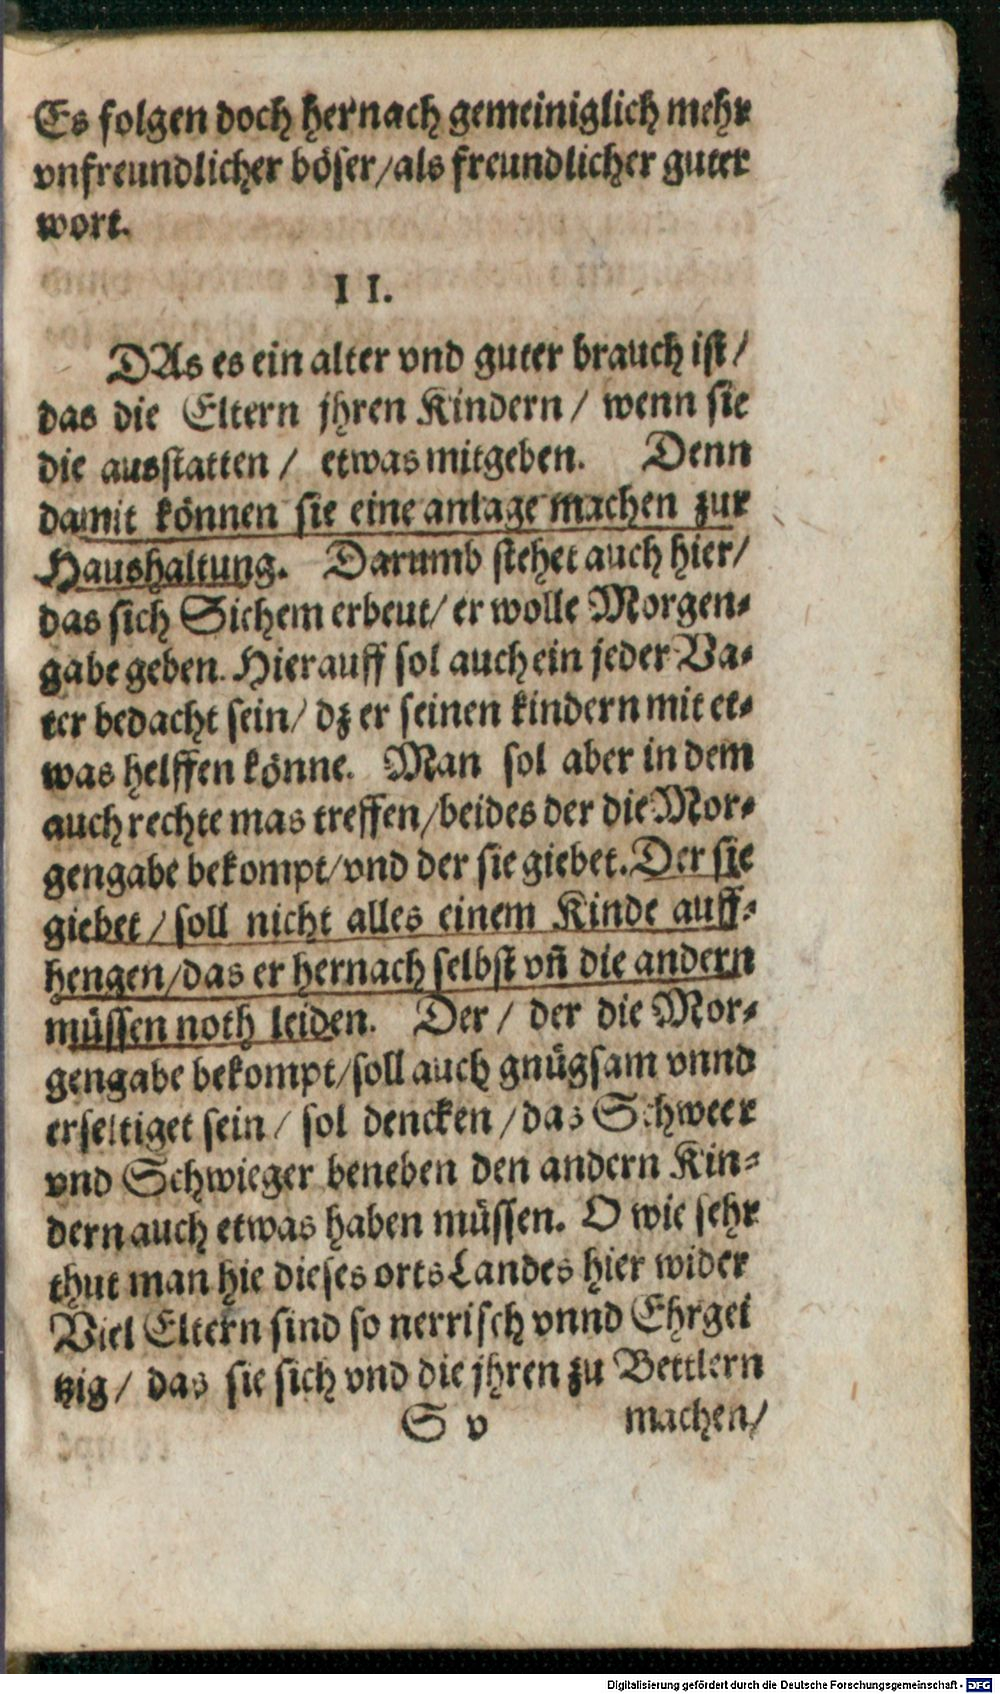 Es folgen doch hernach gemeiniglich mehr
vnfreundlicher böser/als freundlicher guter
wort.
II.
DAs es ein alter vnd guter brauch ist/
das die Eltern jhren Kindern/ wenn sie
die ausstatten/ etwas mitgeben. Denn
damit können sie eine anlage machen zur
Haushaltung. Darumb stehet auch hier/
das sich Sichem erbeut/ er wolle Morgen-
gabe geben. Hierauff sol auch ein jeder Va-
ter bedacht sein/ dz er seinen kindern mit et-
was helffen könne. Man sol aber in dem
auch rechte mas treffen/beides der die Mor-
gengabe bekompt/vnd der sie giebet. Der sie
giebet/ soll nicht alles einem Kinde auff-
hengen/das er hernach selbst vñ die andern
müssen noth leiden. Der/ der die Mor-
gengabe bekompt/soll auch gnügsam vnnd
erseltiget sein/ sol dencken/das Schweer
vnd Schwieger beneben den andern Kin-
dern auch etwas haben müssen. O wie sehr
thut man hie dieses orts Landes hier wider
Viel Eltern sind so nerrisch vnnd Ehrgei
tzig/ das sie sich vnd die jhren zu Bettlern
S v machen/
Digitalisierung gefördert durch die Deutsche Forschungsgemeinschaft - DFG